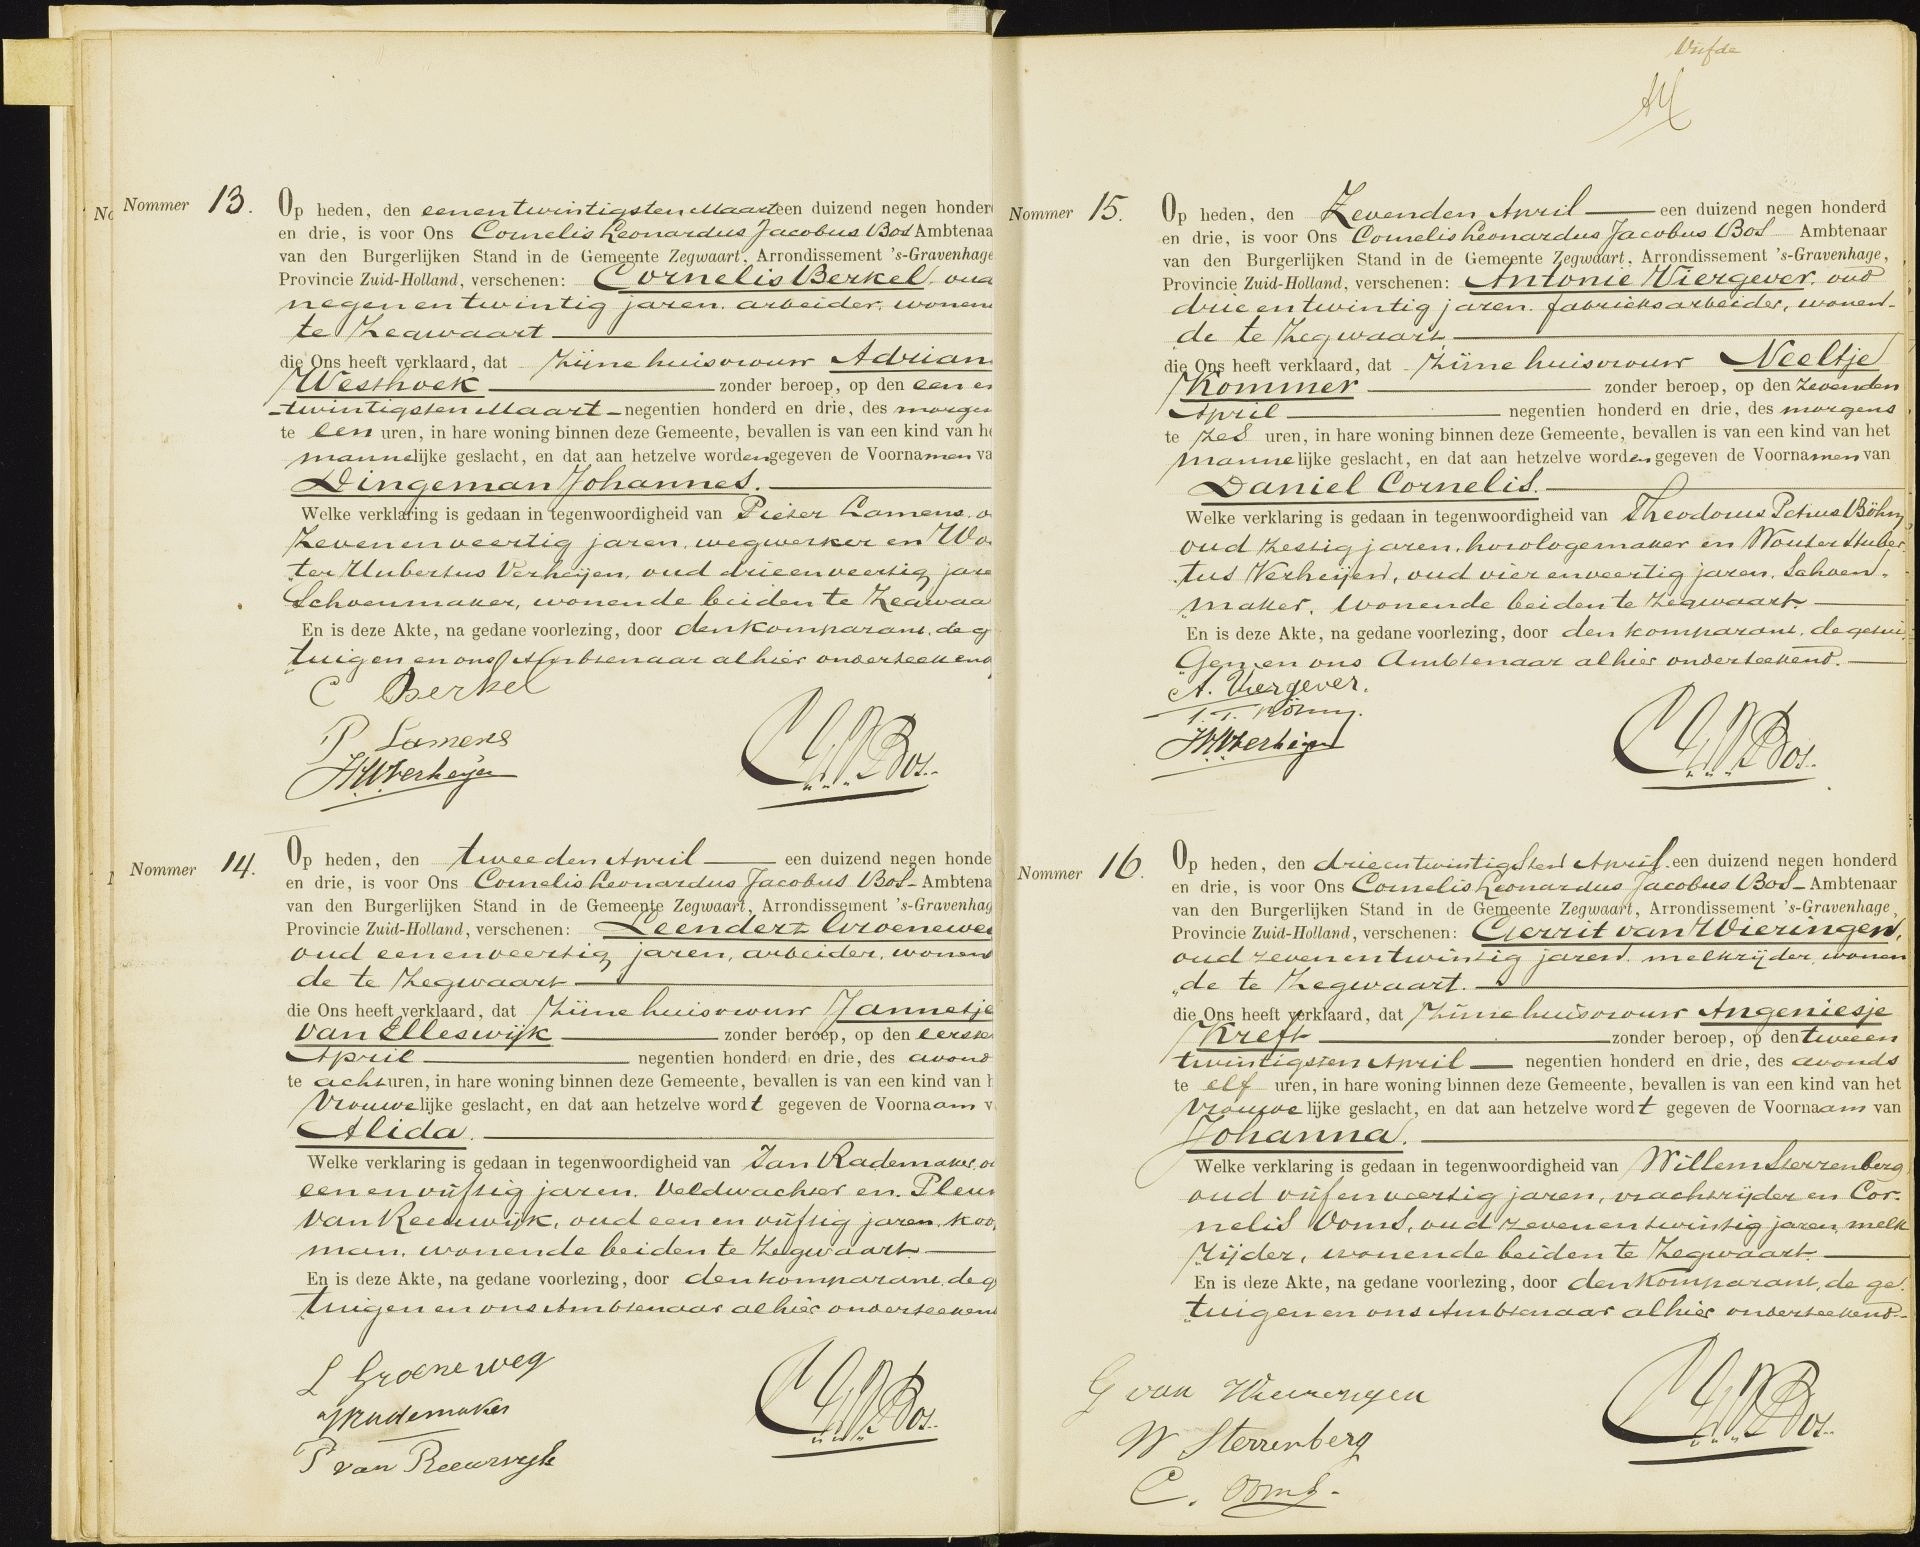 Nommer 13.
Op heden, den eenentwintigsten Maart een duizend negen honder
en drie, is voor Ons Cornelis Leonardus Jacobus Bos Ambtenaa
van den Burgerlijken Stand in de Gemeente Zegwaart, Arrondissement 's-Gravenhage
Provincie Zuid-Holland, verschenen: Cornelis Berkel, oud
negenentwintig jaren, arbeider, wonen
te Zegwaart
die Ons heeft verklaard, dat zijne huisvrouw Adrian
Westhoek zonder beroep, op den een en
twintigsten Maart negentien honderd en drie, des morgen
te een uren, in hare woning binnen deze Gemeente, bevallen is van een kind van he
mannelijke geslacht, en dat aan hetzelve worden gegeven de Voornamen va
Dingeman Johannes.
Welke verklaring is gedaan in tegenwoordigheid van Pieter Lamens, o
zevenenveertig jaren, wegwerker en Wo
ter Hubertus Verheijen, oud drieenveertig jare
Schoenmaker, wonende beiden te Zegwaa
En is deze Akte, na gedane voorlezing, door den komparant, de g
tuigen en ons Ambtenaar alhier onderteekend
C Berkel
P Lamens
WHVerheijen
CLJ Bos.
Nommer 14.
Op heden, den tweeden April een duizend negen honde
en drie, is voor Ons Cornelis Leonardus Jacobus Bos Ambtena
van den Burgerlijken Stand in de Gemeente Zegwaart, Arrondissement 's-Gravenhag
Provincie Zuid-Holland, verschenen: Leendert Groenewe
oud eenenveertig jaren, arbeider, wonen
de te Zegwaart
die Ons heeft verklaard, dat zijne huisvrouw Jannetje
van Elleswijk zonder beroep, op den eerste
April negentien honderd en drie, des avond
te acht uren, in hare woning binnen deze Gemeente, bevallen is van een kind van h
vrouwelijke geslacht, en dat aan hetzelve wordt gegeven de Voornaam v
Alida.
Welke verklaring is gedaan in tegenwoordigheid van Jan Rademaker, o
eenenvijftig jaren, Veldwachter en Pleun
van Reeuwijk, oud een en vijftig jaren, koop
man, wonende beiden te Zegwaart
En is deze Akte, na gedane voorlezing, door den komparant, de g
tuigen en ons Ambtenaar alhier onderteekend
L Groeneweg
JRademaker
P van Reeuwijk
CLJ Bos.
Vijfde
Nommer 15.
Op heden, den Zevenden April een duizend negen honderd
en drie, is voor Ons Cornelis Leonardus Jacobus Bos Ambtenaar
van den Burgerlijken Stand in de Gemeente Zegwaart, Arrondissement 's-Gravenhage,
Provincie Zuid-Holland, verschenen: Antonie Viergever, oud
drieentwintig jaren, fabrieksarbeider, wonen-
de te Zegwaart
die Ons heeft verklaard, dat zijne huisvrouw Neeltje
Kommer zonder beroep, op den zevenden
April negentien honderd en drie, des morgens
te zes uren, in hare woning binnen deze Gemeente, bevallen is van een kind van het
mannelijke geslacht, en dat aan hetzelve worden gegeven de Voornamen van
Daniel Cornelis.
Welke verklaring is gedaan in tegenwoordigheid van Theodorus Petrus Böhm
oud zestig jaren, horologemaker en Wouter Huber
tus Verheijen, oud vierenveertig jaren, Schoen-
maker, wonende beiden te Zegwaart.
En is deze Akte, na gedane voorlezing, door den komparant, de getui
gen en ons Ambtenaar alhier onderteekend.
A. Viergever.
T. P. Böhm.
WHVerheijen
CLJ Bos.
Nommer 16.
Op heden, den drieentwintigsten April een duizend negen honderd
en drie, is voor Ons Cornelis Leonardus Jacobus Bos Ambtenaar
van den Burgerlijken Stand in de Gemeente Zegwaart, Arrondissement 's-Gravenhage,
Provincie Zuid-Holland, verschenen: Gerrit van Wieringen,
oud zevenentwintig jaren, melkrijder, wonen
de te Zegwaart.
die Ons heeft verklaard, dat zijne huisvrouw Angeniesje
Kreft zonder beroep, op den tweeen
twintigsten April negentien honderd en drie, des avonds
te elf uren, in hare woning binnen deze Gemeente, bevallen is van een kind van het
vrouwelijke geslacht, en dat aan hetzelve wordt gegeven de Voornaam van
Johanna.
Welke verklaring is gedaan in tegenwoordigheid van Willem Sterrenberg
oud vijfenveertig jaren, vrachtrijder en Cor-
nelis Ooms, oud zevenentwintig jaren, melk
rijder, wonende beiden te Zegwaart.
En is deze Akte, na gedane voorlezing, door den komparant, de ge
tuigen en ons Ambtenaar alhier onderteekend.
G van Wieringen
W Sterrenberg
C. Ooms.
CLJ Bos.